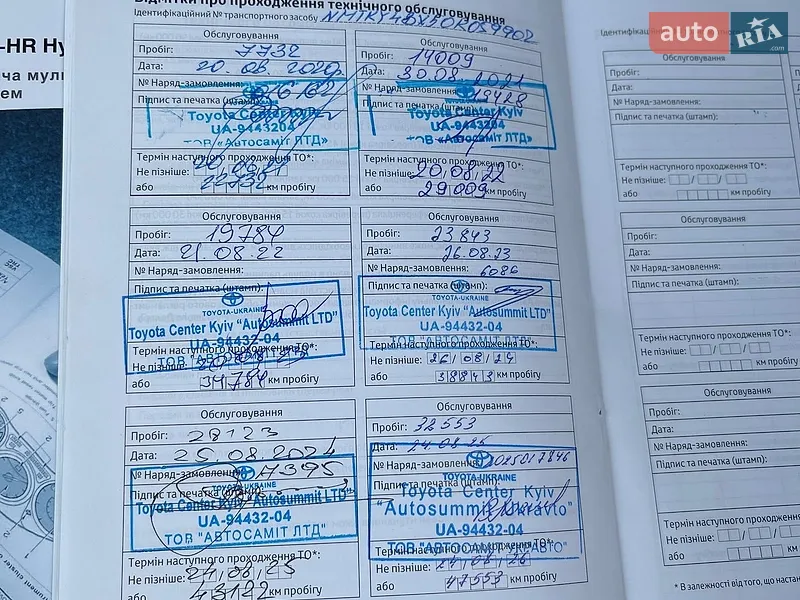 Відмітки про проходження технічного обслуговування
Ідентифікаційний № транспортного засобу NMTKY4BX50R059902
-HR Hy
ча мул
ем
Обслуговування
Пробіг: 7732
Дата: 20.08.2020р
№ Наряд-замовлення:
Підпис та печатка (штамп):
Toyota Center Kyiv
UA-94432-04
ТОВ «Автосаміт ЛТД»
Термін наступного проходження ТО*:
Не пізніше: 20/08/21
або 22732 км пробігу
Обслуговування
Пробіг: 14009
Дата: 30.08.2021
№ Наряд-замовлення: 19428
Підпис та печатка (штамп):
Toyota Center Kyiv
UA-94432-04
ТОВ «Автосаміт ЛТД»
Термін наступного проходження ТО*:
Не пізніше: 20/08/22
або 29009 км пробігу
Обслуговування
Пробіг: 19784
Дата: 21.08.22
№ Наряд-замовлення:
Підпис та печатка (штамп):
TOYOTA-UKRAINE
Toyota Center Kyiv "Autosummit LTD"
UA-94432-04
ТОВ "АВТОСАМІТ ЛТД"
Термін наступного проходження ТО*:
Не пізніше:
або 34784 км пробігу
Обслуговування
Пробіг: 23843
Дата: 26.08.23
№ Наряд-замовлення: 6086
Підпис та печатка (штамп):
TOYOTA-UKRAINE
Toyota Center Kyiv "Autosummit LTD"
UA-94432-04
ТОВ "АВТОСАМІТ ЛТД"
Термін наступного проходження ТО*:
Не пізніше: 26/08/24
або 38843 км пробігу
Обслуговування
Пробіг: 28123
Дата: 25.08.2024
№ Наряд-замовлення: 17395
Підпис та печатка (штамп):
TOYOTA-UKRAINE
Toyota Center Kyiv "Autosummit LTD"
UA-94432-04
ТОВ "АВТОСАМІТ ЛТД"
Термін наступного проходження ТО*:
Не пізніше: 24/08/25
або 43122 км пробігу
Обслуговування
Пробіг: 32553
Дата: 24.08.25
№ Наряд-замовлення: 2025017846
Підпис та печатка (штамп):
TOYOTA-UKRAINE
Toyota Center Kyiv
"Autosummit Ukravto"
UA-94432-04
ТОВ "АВТОСАМІТ УКРАВТО"
Термін наступного проходження ТО*:
Не пізніше: 24/08/26
або 47553 км пробігу
Ідентифікаційний №
Обслуговування
Пробіг:
Дата:
№ Наряд-замовлення:
Підпис та печатка (штамп):
Термін наступного проходження ТО*:
Не пізніше:
або км пробігу
Обслуговування
Пробіг:
Дата:
№ Наряд-замовлення:
Підпис та печатка (штамп):
Термін наступного проходження ТО*:
Не пізніше:
або км пробігу
Обслуговування
Пробіг:
Дата:
№ Наряд-замовлення:
Підпис та печатка (штамп):
Термін наступного проходження ТО*:
Не пізніше:
або км пробігу
* В залежності від того, що настан
auto RIA .com